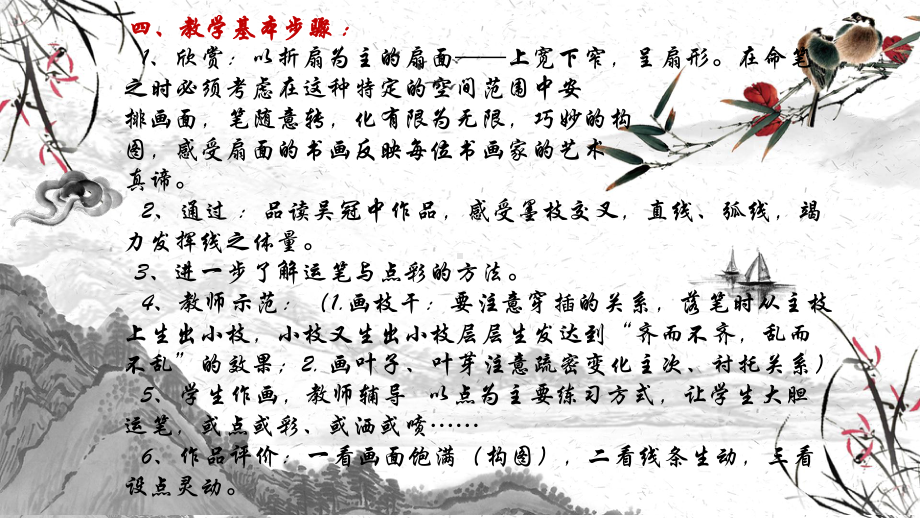 四、教学基本步骤：
1、欣赏：以折扇为主的扇面——上宽下窄，呈扇形。在命笔
之时必须考虑在这种特定的空间范围中安
排画面，笔随意转，化有限为无限，巧妙的构
图，感受扇面的书画反映每位书画家的艺术
真谛。
2、通过：品读吴冠中作品，感受墨枝交叉，直线、弧线，竭
力发挥线之体量。
3、进一步了解运笔与点彩的方法。
4、教师示范：（1.画枝干：要注意穿插的关系，落笔时从主枝
上生出小枝，小枝又生出小枝层层生发达到“齐而不齐，乱而
不乱”的效果；2.画叶子、叶芽注意疏密变化主次、衬托关系）
5、学生作画，教师辅导 以点为主要练习方式，让学生大胆
运笔，或点或彩、或洒或喷……
6、作品评价：一看画面饱满（构图），二看线条生动，三看
设点灵动。